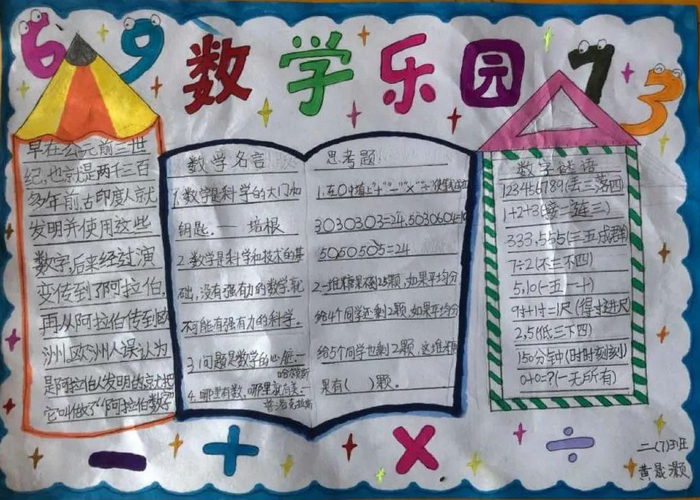 69 数学乐园 73
早在公元前三世
纪,也就是两千三百
多年前,古印度人就
发明并使用这些
数字,后来经过演
变传到了阿拉伯,
再从阿拉伯传到欧
洲,欧洲人误认为
是阿拉伯人发明的,就把
它叫做了“阿拉伯数字”
数学名言
1.数学是科学的大门和
钥匙.——培根
2.数学是科学和技术的基
础,没有强有力的数学,就
不可能有强有力的科学.
3.问题是数学的心脏.—
哈尔莫斯
4.哪里有数,哪里就有美.—
普洛克拉斯
思考题
1.在○中填上“+”“-”“×”“÷”
3○3○3○3=24,
5○5○5○5=24
2.一堆糖果不到25颗,如果平均分
给4个同学还剩2颗,如果平均分
给5个同学也剩2颗,这堆糖
果有( )颗。
数字谜语
123456789(丢三落四)
1+2+3(接二连三)
333,555(三五成群)
7÷2(不三不四)
5,10(一五一十)
9寸+1寸=1尺(得寸进尺)
2,5(低三下四)
150分钟(时时刻刻)
0+0=?(一无所有)
- + × ÷
二(7)班
黄晟灏